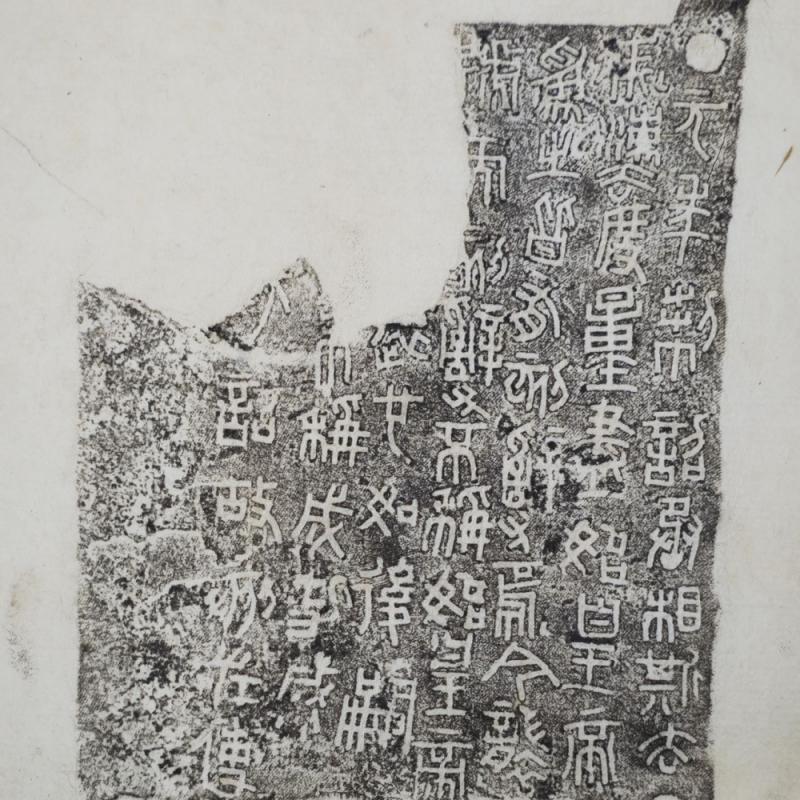 元年制詔丞相斯去
疾灋度量盡始皇帝
為之皆有刻辭焉今襲
號而刻辭不稱始皇帝
遠也如後嗣
不稱成功盛
詔故刻左使